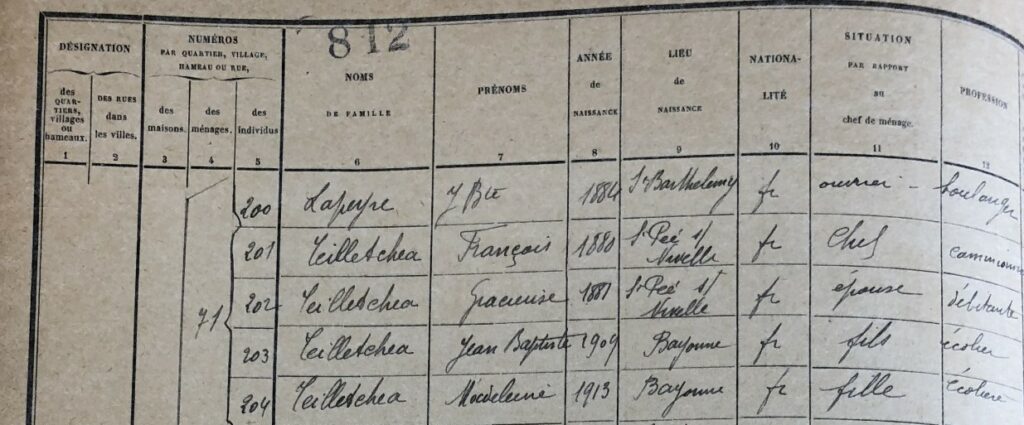 812
DÉSIGNATION
NUMÉROS
PAR QUARTIER, VILLAGE,
HAMEAU OU RUE,
des
QUAR-
TIERS,
villages
ou
hameaux.
DES RUES
dans
les villes.
des
maisons.
des
ménages.
des
individus
NOMS
DE FAMILLE
PRÉNOMS
ANNÉE
de
NAISSANCE
LIEU
de
NAISSANCE
NATIONA-
LITÉ
SITUATION
PAR RAPPORT
au
chef de ménage.
PROFESSION
1 2 3 4 5 6 7 8 9 10 11 12
200 Lapeyre J Bte 1884 St Barthelemy fr ouvrier - boulanger
201 Teilletchea François 1880 St Peé s/ Nivelle fr Chef
71
202 Teilletchea Gracieuse 1881 St Peé s/ Nivelle fr épouse débitante
203 Teilletchea Jean Baptiste 1909 Bayonne fr fils écolier
204 Teilletchea Madeleine 1913 Bayonne fr fille écolière